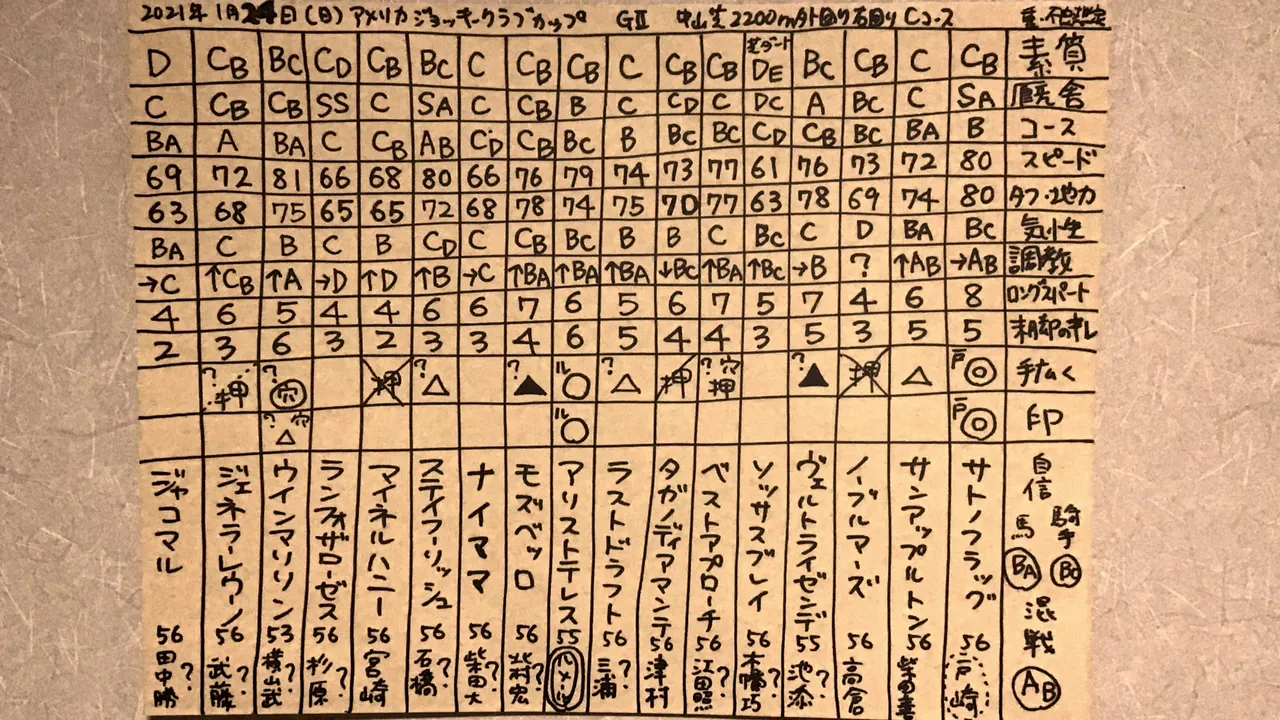 2021年1月24日(日)アメリカジョッキークラブカップ GⅡ 中山芝2200m外回り右回りCコース 重・不良想定
D CB BC CD CB BC C CB CB C CB CB 芝ダート DE BC CB C CB 素質
C CB CB SS C SA C CB B C CD C DC A BC C SA 厩舎
BA A BA C CB AB CD CB BC B BC BC CD CB BC BA B コース
69 72 81 66 68 80 66 76 79 74 73 77 61 76 73 72 80 スピード
63 68 75 65 65 72 68 78 74 75 70 77 63 78 69 74 80 タフ・地力
BA C B C B CD C CB BC B B C BC C D BA BC 気性
→C ↑CB ↑A →D ↑D ↑B →C ↑BA ↑BA ↑BA ↓BC ↑BA ↑BC →B ? ↑AB →AB 調教
4 6 5 4 4 6 6 7 6 5 6 7 5 7 4 6 8 ロングスパート
2 3 6 3 2 3 3 4 6 5 4 4 3 5 3 5 5 末脚のキレ
?押 ?穴 押 ?△ ?▲ ル○ ?△ 押 ?穴押 ?▲ 押 △ 戸◎ 手広く
?穴△ ル○ 戸◎ 印
ジャコマル 56 田中勝?
ジェネラーレウーノ 56 武藤?
ウインマリリン 53 横山武?
ランフォザローゼス 56 杉原?
マイネルハニー 56 宮崎
ステイフーリッシュ 56 石橋?
ナイママ 56 柴田大?
モズベッロ 56 北村宏?
アリストテレス 55 ルメール
ラストドラフト 56 三浦?
タガノディアマンテ 56 津村
ベストアプローチ 56 江田照?
ソッサスブレイ 56 木幡巧?
ヴェルトライゼンデ 55 池添?
ノーブルマーズ 56 高倉
サンアップルトン 56 柴田善?
サトノフラッグ 56 戸崎
自信
馬 BA
騎手 BC
混戦
AB